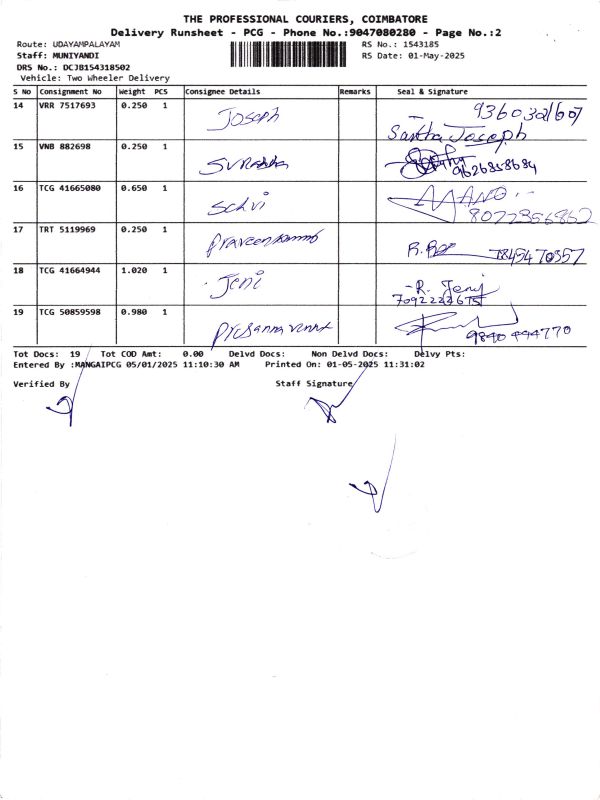 THE PROFESSIONAL COURIERS, COIMBATORE
Delivery Runsheet - PCG - Phone No.:9047080280 - Page No.:2
Route: UDAYAMPALAYAM RS No.: 1543185
Staff: MUNIYANDI RS Date: 01-May-2025
DRS No.: DCJB154318502
Vehicle: Two Wheeler Delivery
S No Consignment No Weight PCS Consignee Details Remarks Seal & Signature
14 VRR 7517693 0.250 1 Joseph 9360321607
Santha Joseph
15 VNB 882698 0.250 1
9626858684
16 TCG 41665080 0.650 1 Selvi MANO
8072356862
17 TRT 5119969 0.250 1 Praveenkumar 7845470357
18 TCG 41664944 1.020 1 Jeni R. Jenij
7092222675
19 TCG 50859598 0.980 1 Prasanna
9840444770
Tot Docs: 19 Tot COD Amt: 0.00 Delvd Docs: Non Delvd Docs: Delvy Pts:
Entered By :MANGAIPCG 05/01/2025 11:10:30 AM Printed On: 01-05-2025 11:31:02
Verified By Staff Signature